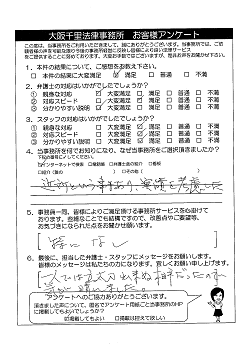 大阪千里法律事務所　お客様アンケート
この度は、当事務所をご利用いただきまして、誠にありがとうございます。当事務所では、この
1．本件の結果について、ご感想をお教え下さい。
□ 本件の結果に大変満足　☑ 満足　□ 普通　□ 不満
2．弁護士の対応はいかがでしたでしょうか？
1) 親身な対応　□ 大変満足　□ 満足　□ 普通　□ 不満
2) 対応スピード　□ 大変満足　□ 満足　□ 普通　□ 不満
3) 分かりやすい説明　□ 大変満足　□ 満足　□ 普通　□ 不満
3．スタッフの対応はいかがでしたでしょうか？
1) 親身な対応　□ 大変満足　□ 満足　□ 普通　□ 不満
2) 対応スピード　□ 大変満足　□ 満足　□ 普通　□ 不満
3) 分かりやすい説明　□ 大変満足　□ 満足　□ 普通　□ 不満
4．当事務所を何でお知りになり、なぜ当事務所をご選択頂きましたか？
近所という事もあり、実績を考慮した
5．事務員一同、皆様によりご満足頂ける事務所サービスを心掛けて
おります。些細なことでも結構ですので、改善点やご要望等、
お気づきになられた点をお聞かせ願います。
特になし
6．最後に、担当した弁護士・スタッフにメッセージをお願いします。
皆様のメッセージは私たちの力になります。宜しくお願い申し上げます。
アンケートへのご協力ありがとうございます。
頂きました声について、匿名でアンケート用紙ごと当事務所のHP
に掲載してもよいでしょうか？
☑掲載してもよい　□掲載は控えて欲しい